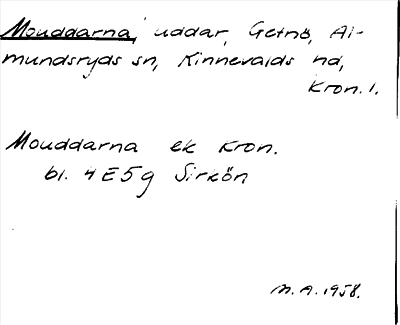 Mouddarna, uddar, Getnö, Al-
mundsryds sn, Kinnevalds hd,
Kron. l.
Mouddarna ek Kron.
bl. 4E5g Sirkön
M.A. 1958.